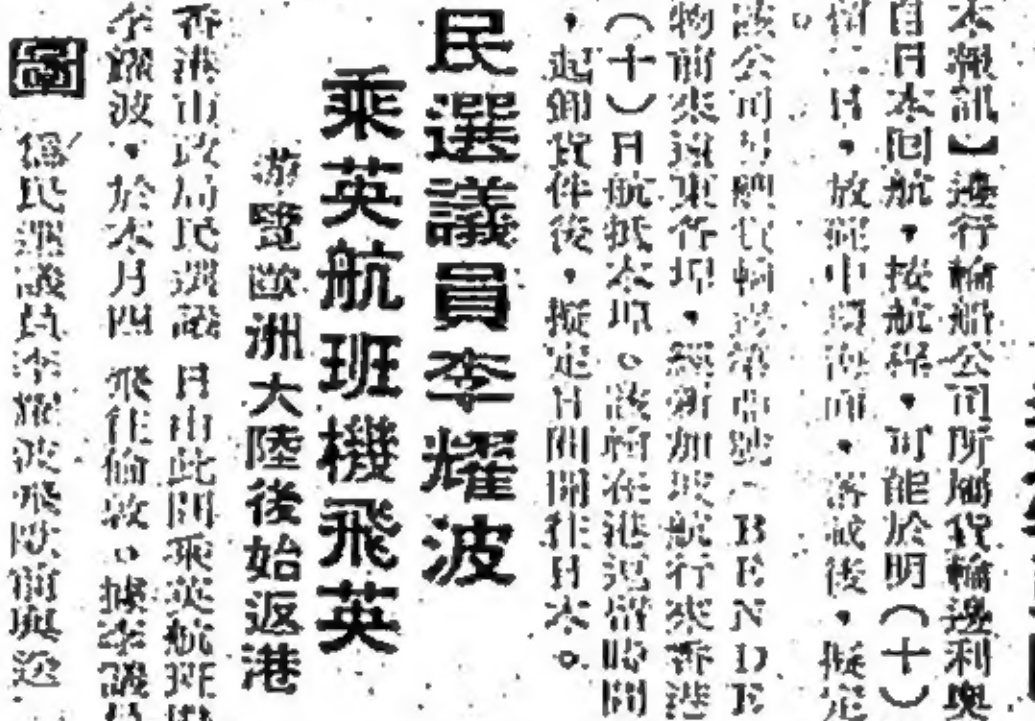 本報訊】邊行輪船公司所屬貨輪邊利奧
自日本回航,按航程,可能於明(十)
留二日,放罷中環海面,落貨後,擬定
。
該公司另艘貨輪邊
BENDE
物前來遠東各埠,經新加坡航行來香港
(十)日航抵本埠。該輪在港湾留時間
,起卸貨件後,擬定日間開往日本。
民選議員李耀波
乘英航班機飛英
游覽歐洲大陸後始返港
香港市政局民選議
李耀波,於本月四
日由此間乘英航班機
飛往倫敦。據李議員
圖
為民選議員李耀波飛歐前與送